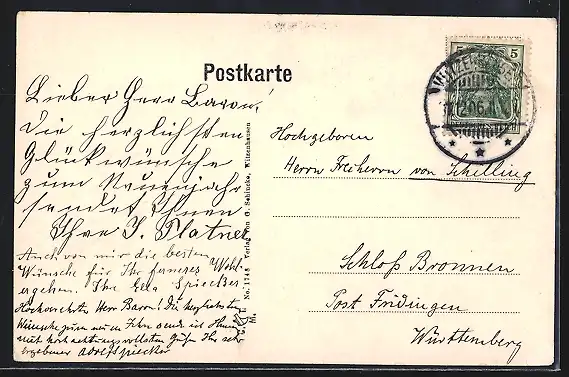 Postkarte
Lieber Herr Baron!
Die herzlichsten
Glückwünsche
zum Neuenjahr
sendet Ihnen
Ihre J. Platner
Auch von mir die besten
Wünsche für Ihr ferneres Wohl-
ergehen. Ihre Ella Spiecker
Hochverehrter Herr Baron! Die herzlichsten
Wünsche zum neuen Jahre sendet Ihnen
mit hochachtungsvollsten Grüßen Ihr sehr
ergebener Adolf Spiecker
No. 1748 Verlag von G. Schlucke, Witzenhausen
5 5
WITZENHAUSEN
12.06
Hochgeboren
Herrn Freiherrn von Schilling
Schloß Bronnen
Post Fridingen
Württemberg